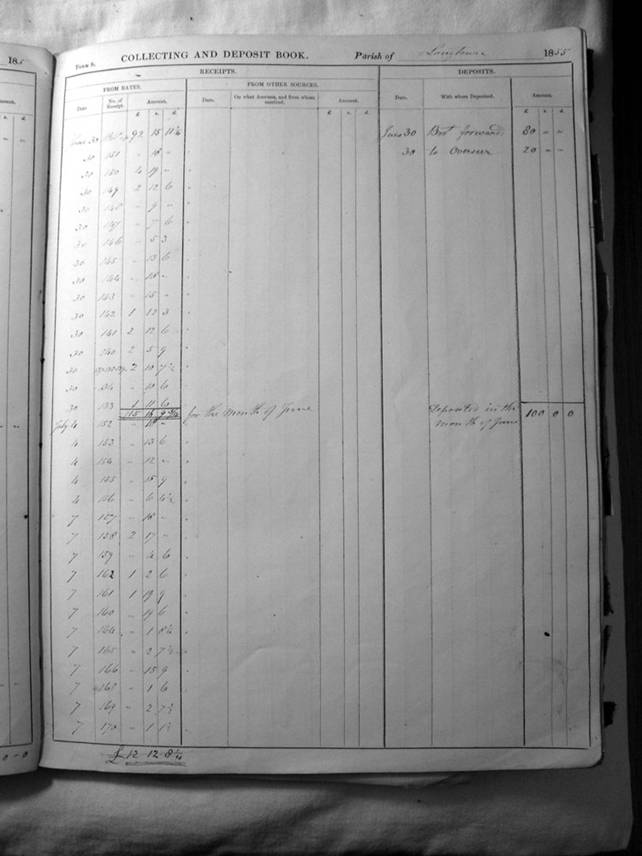 185
Form 8. COLLECTING AND DEPOSIT BOOK. Parish of 1855
RECEIPTS. DEPOSITS.
FROM RATES. FROM OTHER SOURCES.
Date No. of Receipt. Amount. Date. On what Account, and from whom received. Amount. Date. With whom Deposited. Amount.
£ s. d. £ s. d. £ s. d.
June 30 92 15 June 30 Brot forward 80 - -
30 151 - 18 - 30 to Overseer 20 - -
30 150 4 19 -
30 149 2 12 6
30 - 9 -
30 - 6
30 146 - 5 3
30 145 - 13 6
30 144 - 18 -
30 143 - 15 -
30 142 1 12 3
30 141 2 12 6
30 140 2 5 9
30 2 10 7½
30 134 - 10 6
30 133 1 11 6
15 9 for the Month of June Deposited in the month of June 100 0 0
July 4 152 - 18 -
4 153 - 13 6
4 154 - 12 -
4 155 - 15 9
4 156 - 6
7 157 - 18 -
7 158 2 17 -
7 159 - 4 6
7 162 1 2 6
7 161 1 19 9
7 160 - 19 6
7 164 - 1
7 165 - 2 7½
7 166 - 15 9
7 168 - 1 6
7 169 - 2 7½
7 170 - 1
£ 12 12 8¼
0 - 0